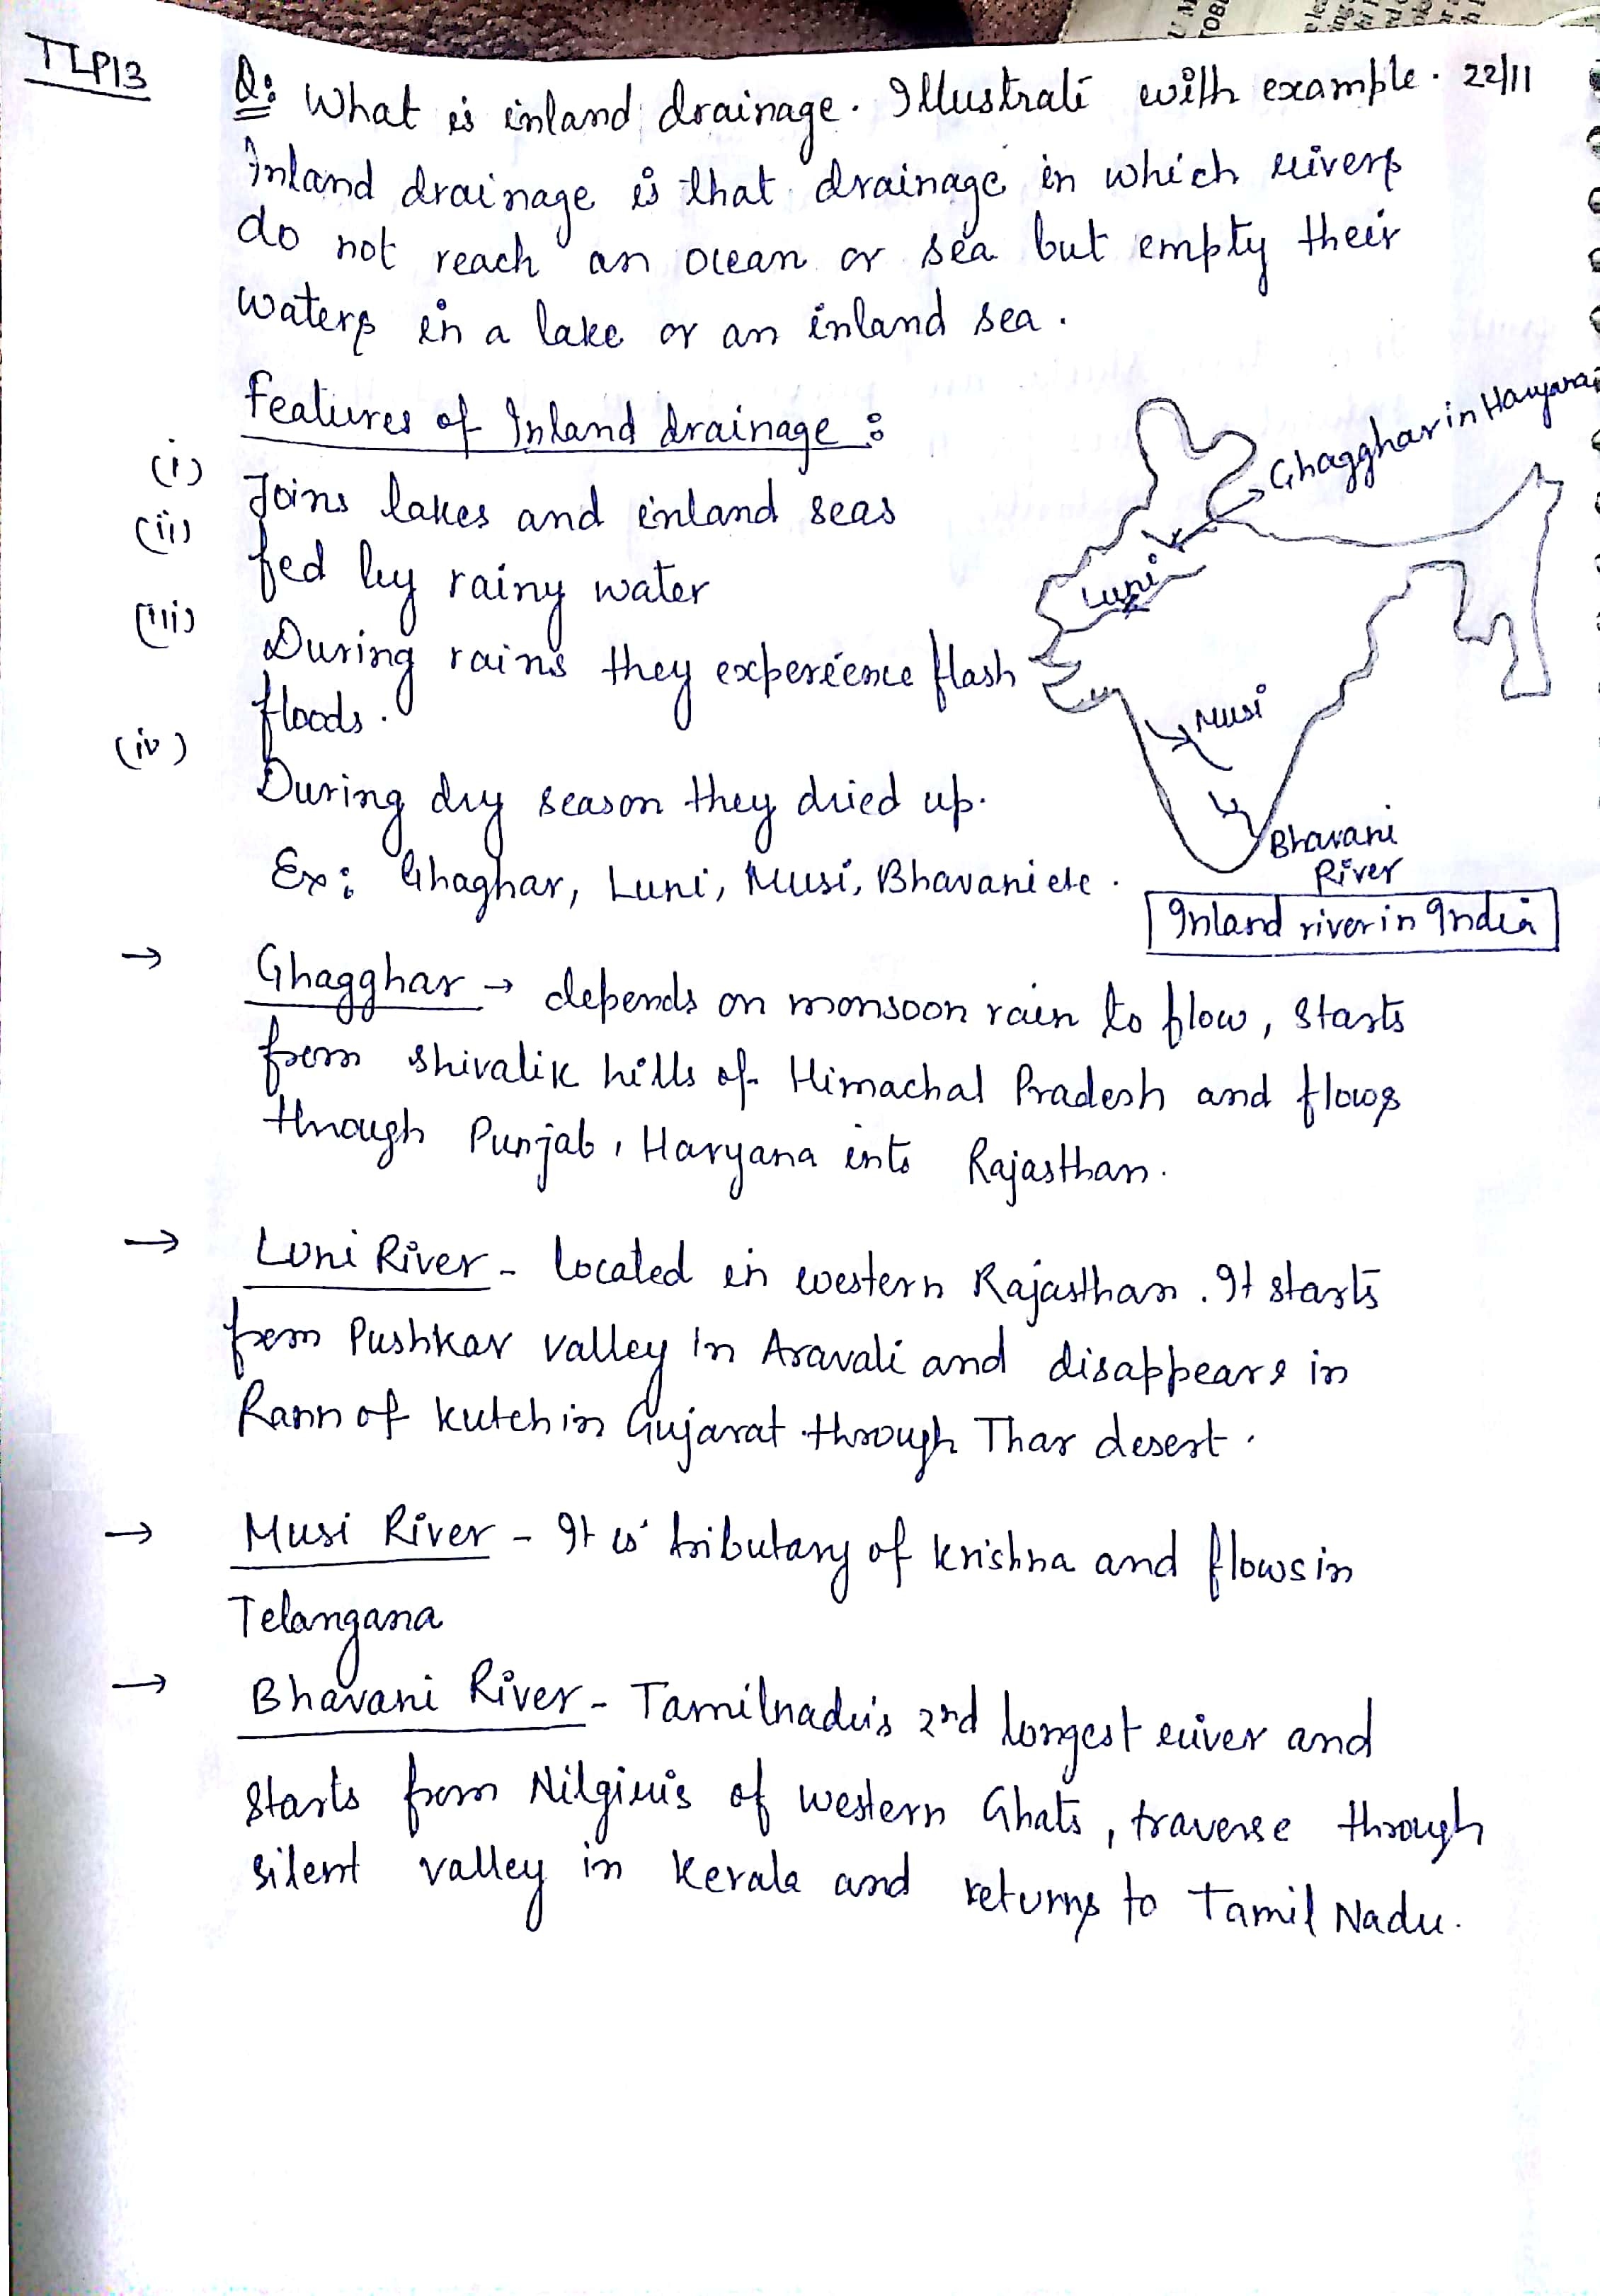 TLP13
Q: What is inland drainage. Illustrate with example. 22/11
Inland drainage is that drainage in which rivers
do not reach an ocean or sea but empty their
waters in a lake or an inland sea.
Features of Inland drainage :
(i) Joins lakes and inland seas
(ii) fed by rainy water
(iii) During rains they experience flash
floods.
(iv) During dry season they dried up.
Ex: Ghaghar, Luni, Musi, Bhavani etc.
Ghagghar in Haryana
Luni
Musi
Bhavani
River
Inland river in India
→ Ghagghar → depends on monsoon rain to flow, starts
from shivalik hills of Himachal Pradesh and flows
through Punjab, Haryana into Rajasthan.
→ Luni River - located in western Rajasthan. It starts
from Pushkar valley in Aravali and disappears in
Rann of kutch in Gujarat through Thar desert.
→ Musi River - It is tributary of krishna and flows in
Telangana
→ Bhavani River - Tamilnadu's 2nd longest river and
starts from Nilgiris of western Ghats, traverse through
silent valley in Kerala and returns to Tamil Nadu.